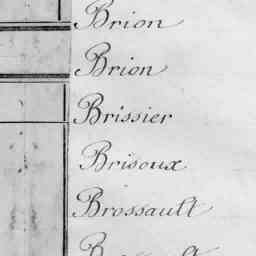 Brion
Brion
Brissier
Brisoux
Brossault